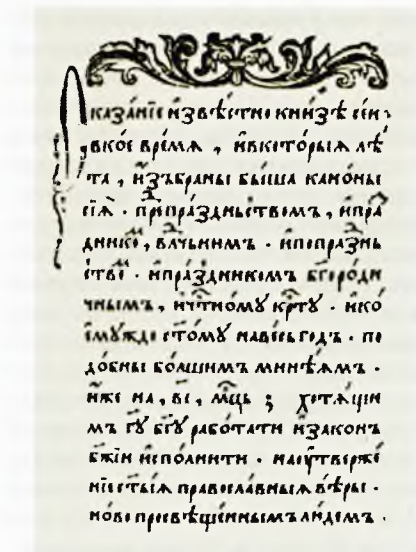 Сказа́нїе и҆звѣ́стно кни́зѣ се́й,
вко́е вре́мѧ, и҆вкото́рыѧ лѣ́
та, и҆збраны бы́ша кано́ны
сїѧ̀. препра́здньствомъ, и҆пра́
дникѡ, вл҃чьнимъ. и҆попра́знь
ствѡ. и҆пра́здникомъ бг҃оро́ди
чнымъ, и҆чⷭ҇тно́мꙋ кр҃тꙋ. и҆ко
емꙋ́ждо ст҃о́мꙋ наве́сь го́дъ. по
до́бны бо́лшимъ мине́ѧмъ.
и҆́же на, ве҃, мц҃ъ; хотѧ́щи
мъ гꙋ҃ бг҃ꙋ рабо́тати и҆зако́нъ
бж҃їи и҆спо́лнити. наꙋ҆твержє́
нїе ст҃ы́ѧ правосла́вныѧ вѣ́ры.
но́во просвѣще́ннымъ лю́демъ.